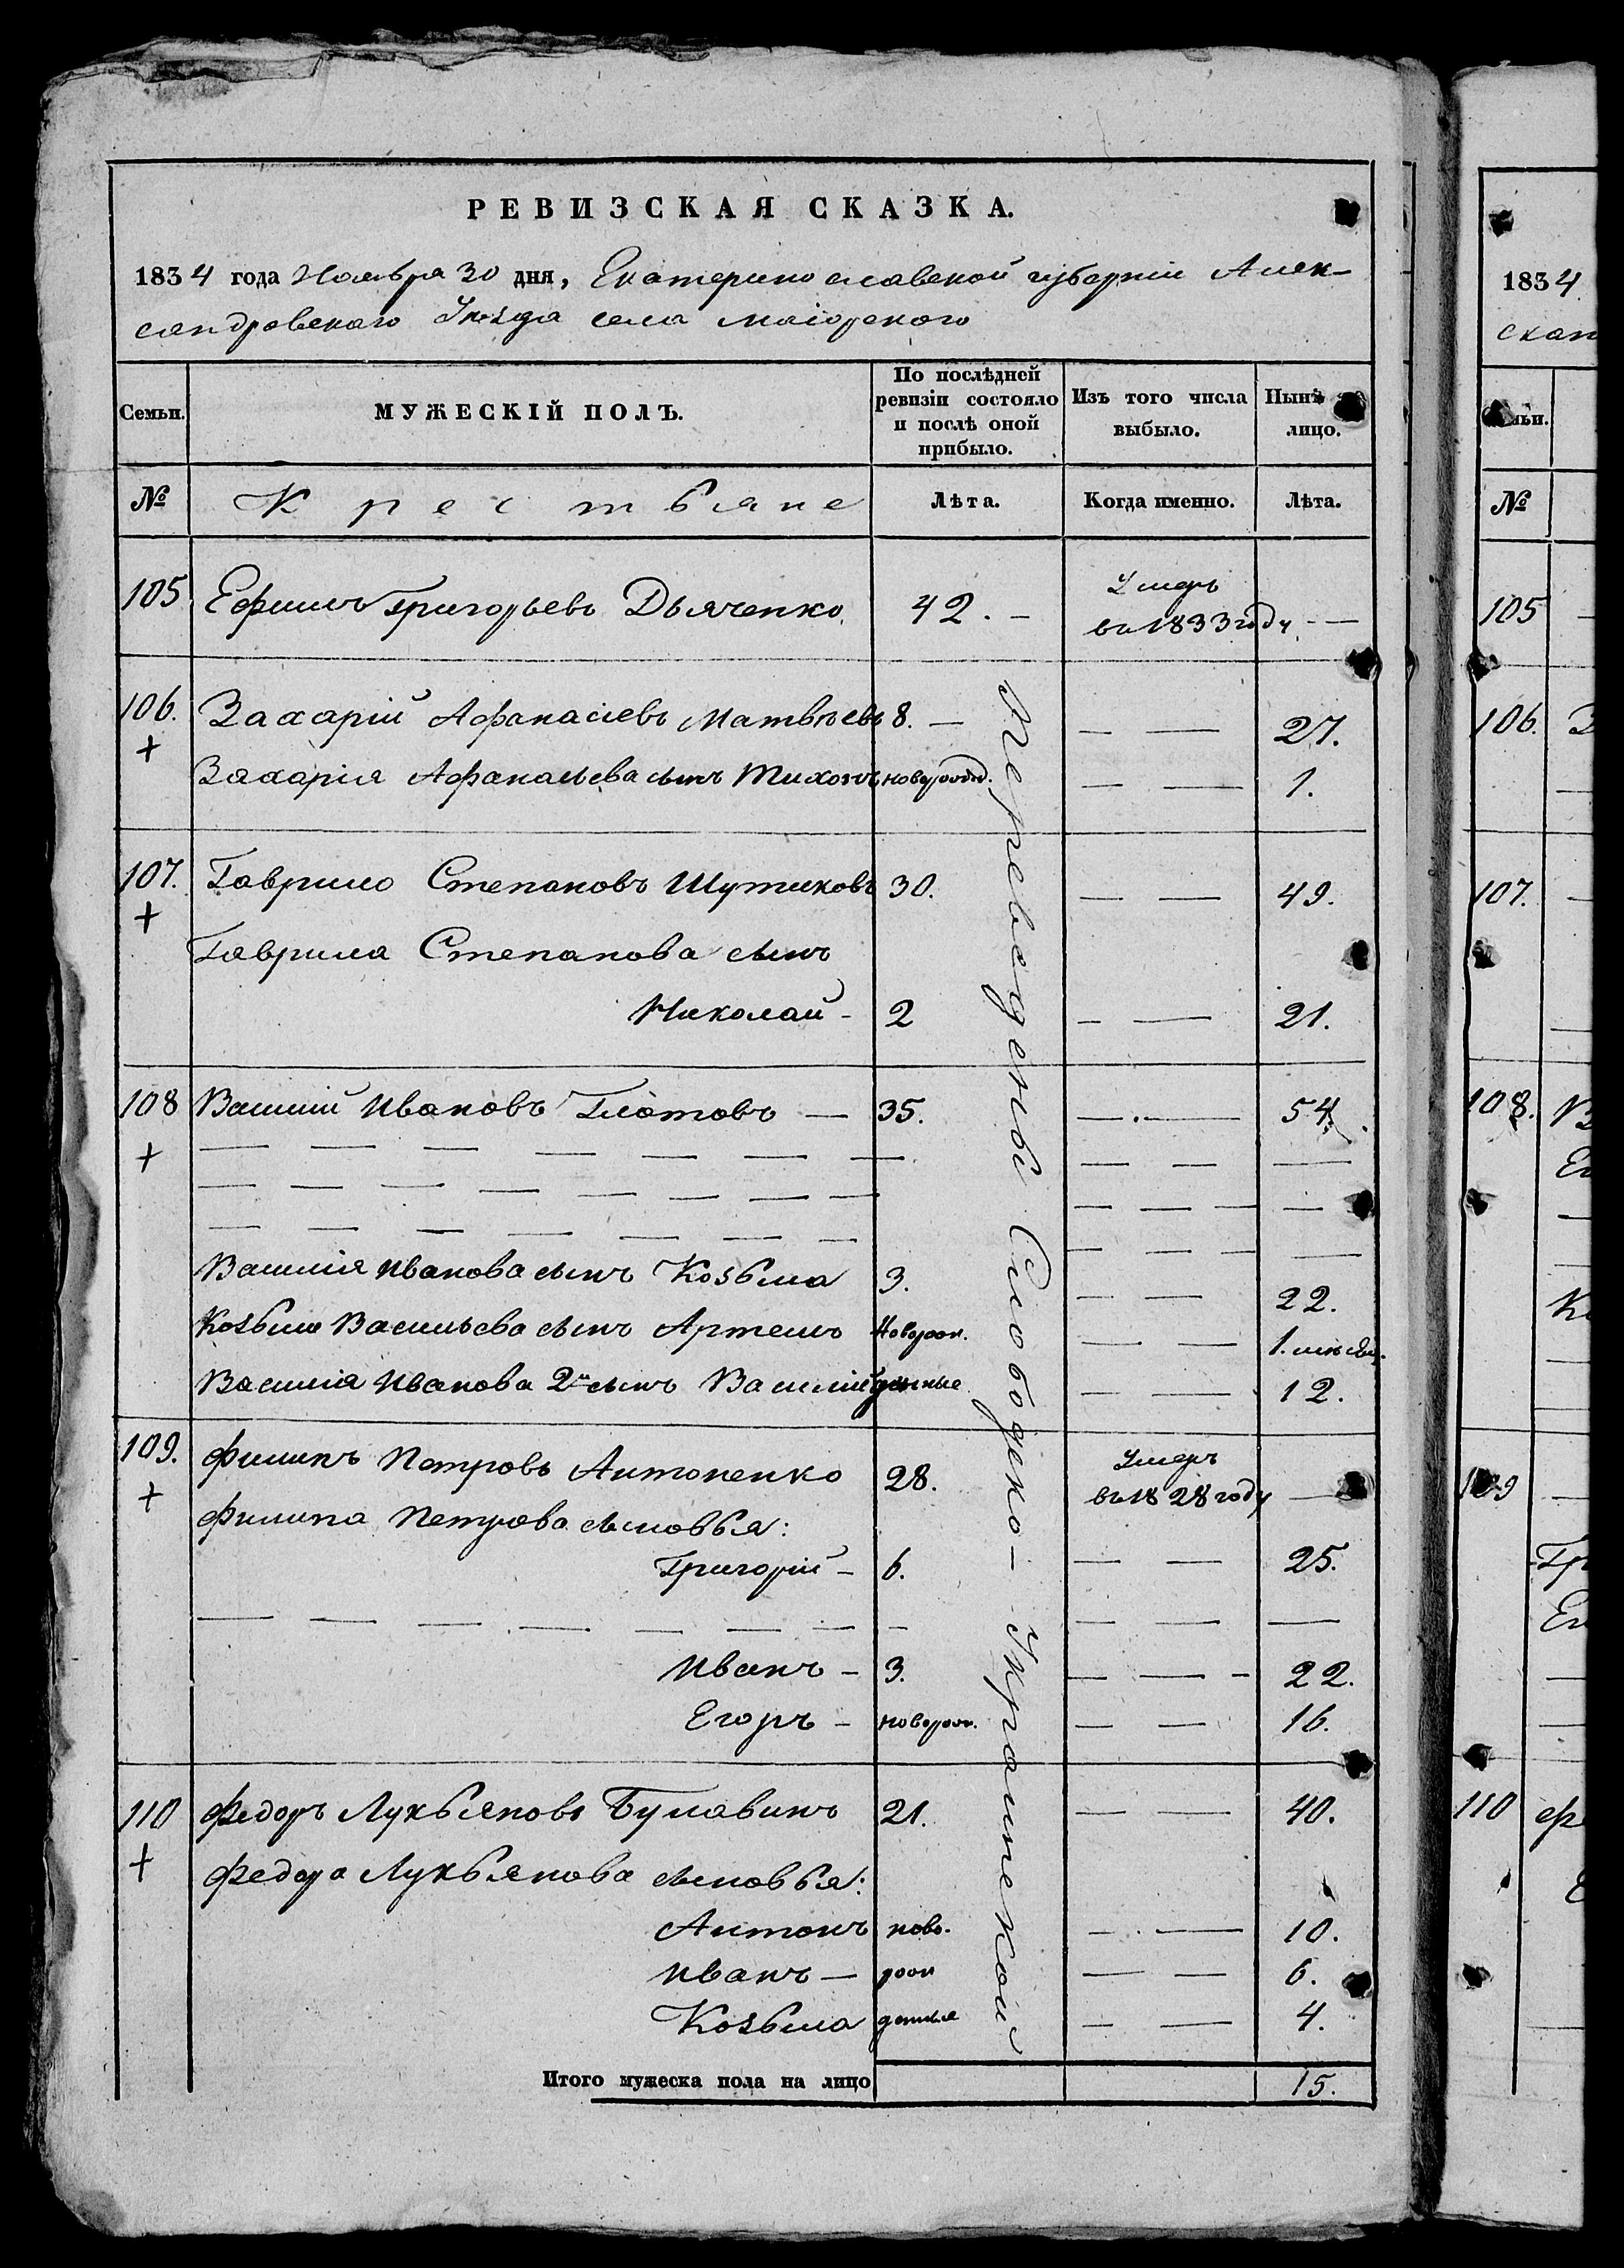 РЕВИЗСКАЯ СКАЗКА.
1834 года Ноября 30 дня, Екатеринославской губерніи Алек-
сандровскаго Уѣзда села Маіорского
Семьи.
МУЖЕСКІЙ ПОЛЪ.
По послѣдней
ревизіи состояло
и послѣ оной
прибыло.
Изъ того числа
выбыло.
Нынѣ
лицо.
№ Крестьяне Лѣта. Когда именно. Лѣта.
105 Ефимъ Григорьевъ Дьяченко. 42. — Умеръ
въ 1833 году. — —
106. Захарій Афанасіевъ Матвѣевъ 8. — — — 27.
+
Захарія Афанасьева сынъ Тихонъ новорожд. — — 1.
107. Гаврило Степановъ Шутиковъ 30. — — 49.
+
Гаврила Степанова сынъ
Николай - 2 — — 21.
108 Василій Ивановъ Глотовъ — 35. — — 54.
+
Василія Иванова сынъ Козьма 3. — — 22.
Козьмы Васильева сынъ Артемъ Новорож. — — 1. мѣсяц.
Василія Иванова 2й сынъ Василій денные — — 12.
109. Филипъ Петровъ Антоненко 28. Умеръ
въ 1828 году —
+
Филипа Петрова сыновья:
Григорій - 6. — — 25.
Иванъ - 3. — — - 22.
Егоръ - новорож. — — 16.
110 Федоръ Лукьяновъ Булавинъ 21. — — 40.
+
Федора Лукьянова сыновья:
Антонъ ново- — — 10.
Иванъ — рож — — 6.
Козьма денные — — 4.
Итого мужеска пола на лицо 15.
Переведены Слободско-Украинской
1834
скаг
№
105
106.
107.
108.
109
110